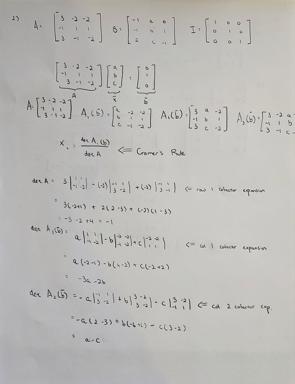 2) A = [3 -2 -2; -1 1 1; 3 -1 -2] B = [-1 2 0; -1 0 1; 2 c -1] I = [1 0 0; 0 1 0; 0 0 1]
[3 -2 -2; -1 1 1; 3 -1 -2] [a; b; c] = [0; 1; 0]
A x b
A = [3 -2 -2; -1 1 1; 3 -1 -2] A₁(b) = [a -2 -2; b 1 1; c -1 -2] A₂(b) = [3 a -2; -1 b 1; 3 c -2] A₃(b) = [3 -2 a; -1 1 b; 3 -1 c
x = det A (b) / det A <= Cramer's Rule
det A = 3 |1 1; -1 -2| - (-2) |-1 1; 3 -2| + (-2) |-1 1; 3 -1| <= row 1 cofactor expansion
= 3(-2+1) + 2(2-3) + (-2)(1-3)
= -3 -2 +4 = -1
det A₁(b) = a |1 1; -1 -2| - b |-2 -2; -1 -2| + c |-2 -2; 1 1| <= col 1 cofactor expansion
= a(-2+1) - b(4-2) + c(-2+2)
= -3a - 2b
det A₂(b) = -a |-1 1; 3 -2| + b |3 -2; 3 -2| - c |3 -2; -1 1| <= col 2 cofactor exp.
= -a(2-3) + b(-6+6) - c(3-2)
= a - c